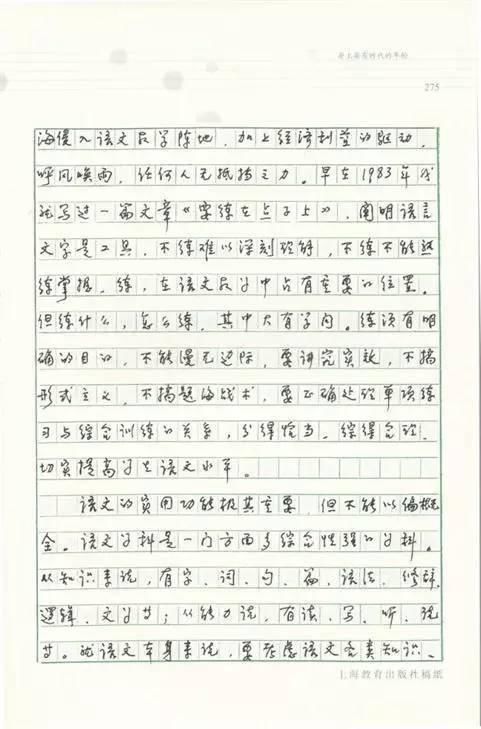 身上要有时代的年轮
275
海侵入语文教学阵地,加上经济利益的驱动,
呼风唤雨,任何人无抵挡之力。早在1983年我
就写过一篇文章《要练在点子上》,阐明语言
文字是工具,不练难以深刻理解,不练不能熟
练掌握,练,在语文教学中占有重要的位置。
但练什么,怎么练,其中大有学问。练须有明
确的目的,不能漫无边际,要讲究实效,不搞
形式主义,不搞题海战术,要正确处理单项练
习与综合训练的关系,分得恰当,综得合理,
切实提高学生语文水平。
语文的实用功能极其重要,但不能以偏概
全。语文学科是一门方面多综合性强的学科。
从知识来说,有字、词、句、篇、语法、修辞、
逻辑、文学等;从能力说,有读、写、听、说
等。就语文本身来说,要考虑语文各类知识、
上海教育出版社稿纸